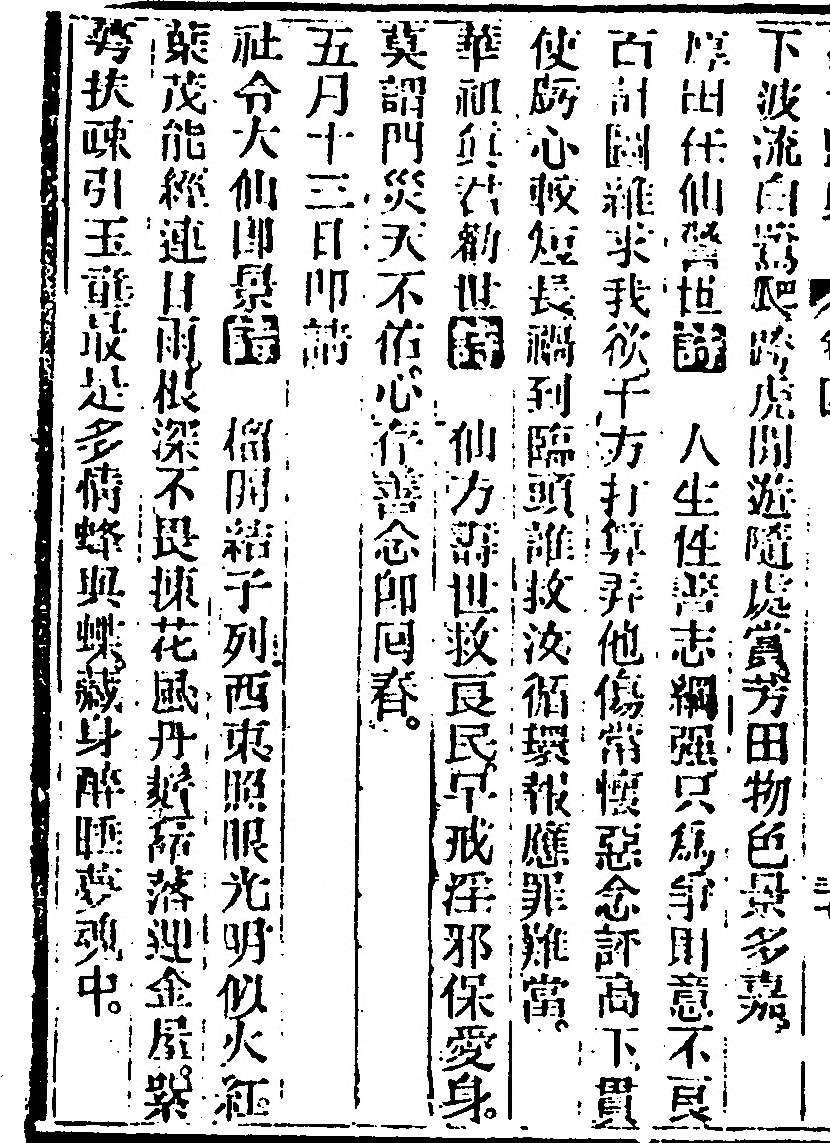 下波流自鴛爬跨虎閒遊隨處賞芳田物色景多嘉。
庄田任仙警世詩　人生性善志綱强只為爭財意不良
百計圖雖求我欲千方打算弄他傷常懷惡念評高下貫
使虧心較短長禍到臨頭誰救汝循環報應罪難當。
華祖眞君勸世詩　仙方壽世救良民早戒淫邪保愛身。
莫謂門災天不佑心存善念即回春。
五月十三日叩請
社令大仙即景詩　榴開結子列西東照眼光明似火紅。
葉茂能經連日雨根深不畏揀花風丹落迎金屋。紫
扶疎引玉童最是多情蜂與蝶藏身醉睡夢魂中。